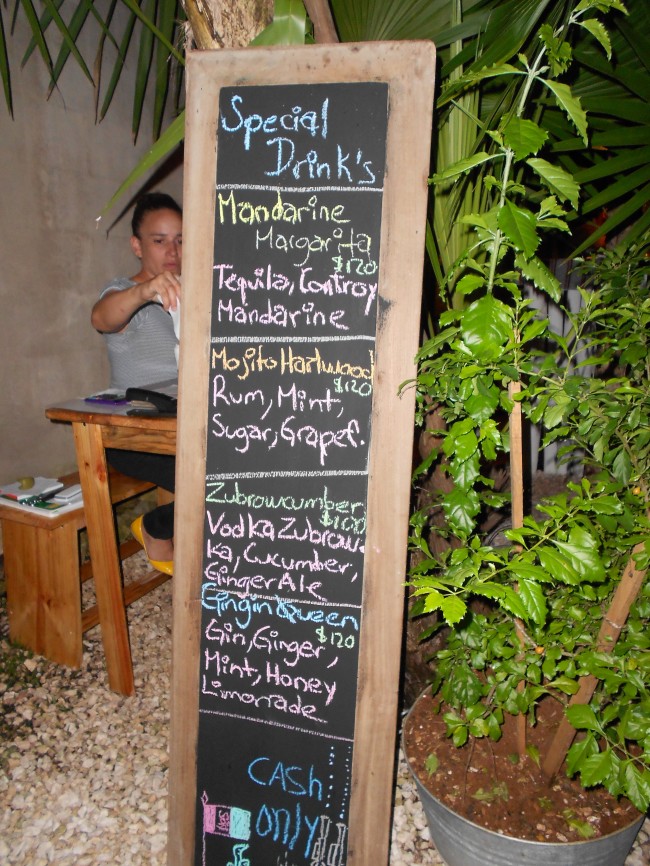 Special
Drink's
Mandarine
Margarita
$120
Tequila, Controy
Mandarine
Mojito Hartwood
$120
Rum, Mint,
Sugar, Grapef.
Zubrowcumber
$100
Vodka Zubrow
ka, Cucumber,
Ginger Ale
Gingin Queen
$120
Gin, Ginger,
Mint, Honey
Limonade
CASH
only